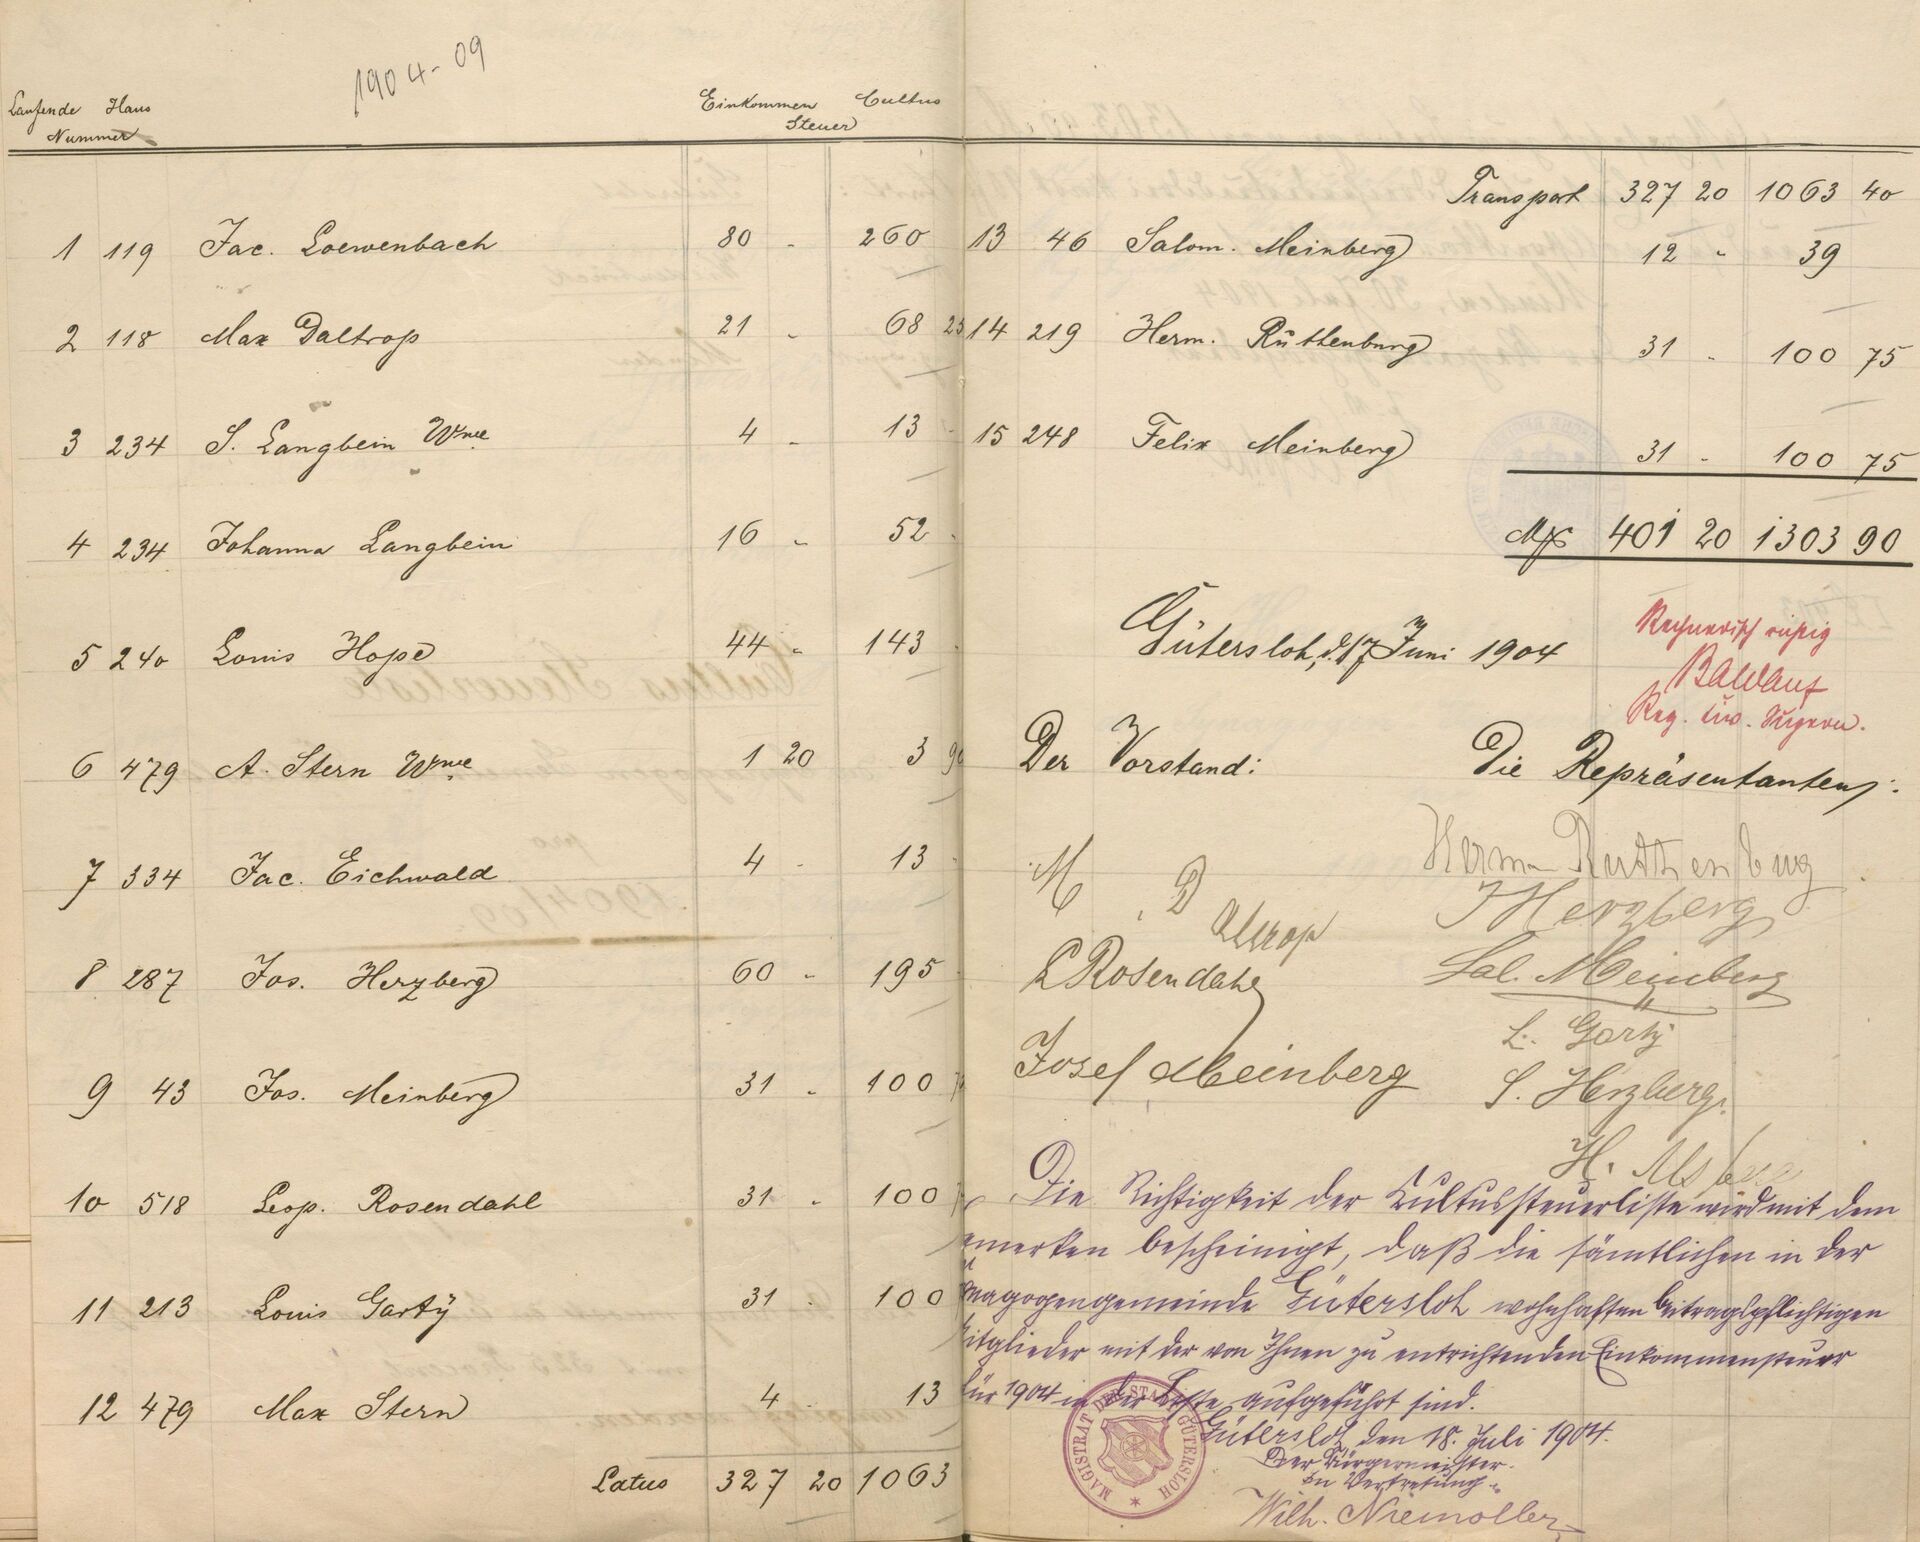 1904-09
Laufende Haus
Nummer
Einkommen Cultus
Steuer
1 119 Jac. Loewenbach 80 - 260
2 118 Max Daltrop 21 - 68 25
3 234 S. Langbein Wwe 4 - 13 -
4 234 Johanna Langbein 16 - 52 -
5 240 Louis Hope 44 - 143 -
6 479 A. Stern Wwe 1 20 3 90
7 334 Jac. Eichwald 4 - 13 -
8 287 Jos. Herzberg 60 - 195 -
9 43 Jos. Meinberg 31 - 100
10 518 Leop. Rosendahl 31 - 100
11 213 Louis Gartÿ 31 - 100
12 479 Max Stern 4 - 13
Latus 327 20 1063
Transport 327 20 1063 40
13 46 Salom. Meinberg 12 - 39
14 219 Herm. Ruthenburg 31 - 100 75
15 248 Felix Meinberg 31 - 100 75
401 20 1303 90
Gütersloh, d. 17 Juni 1904
Rechnerisch richtig
Baldauf
Der Vorstand:
Die Repräsentanten:
M. Daltrop
L Rosendahl
Josef Meinberg
Herm Ruthenburg
J Herzberg
Sal. Meinberg
L. Gartÿ
S. Herzberg.
H.
Die Richtigkeit der Kultussteuerliste wird mit dem
emerken bescheinigt, daß die sämtlichen in der
nagogengemeinde Gütersloh wohnhaften beitragspflichtigen
itglieder mit der von Ihnen zu entrichtenden Einkommensteuer
für 1904 in der Liste aufgeführt sind.
Gütersloh den 18. Juli 1904.
Der Bürgermeister.
In Vertretung
Wilh. Niemöller
MAGISTRAT DER STADT GÜTERSLOH